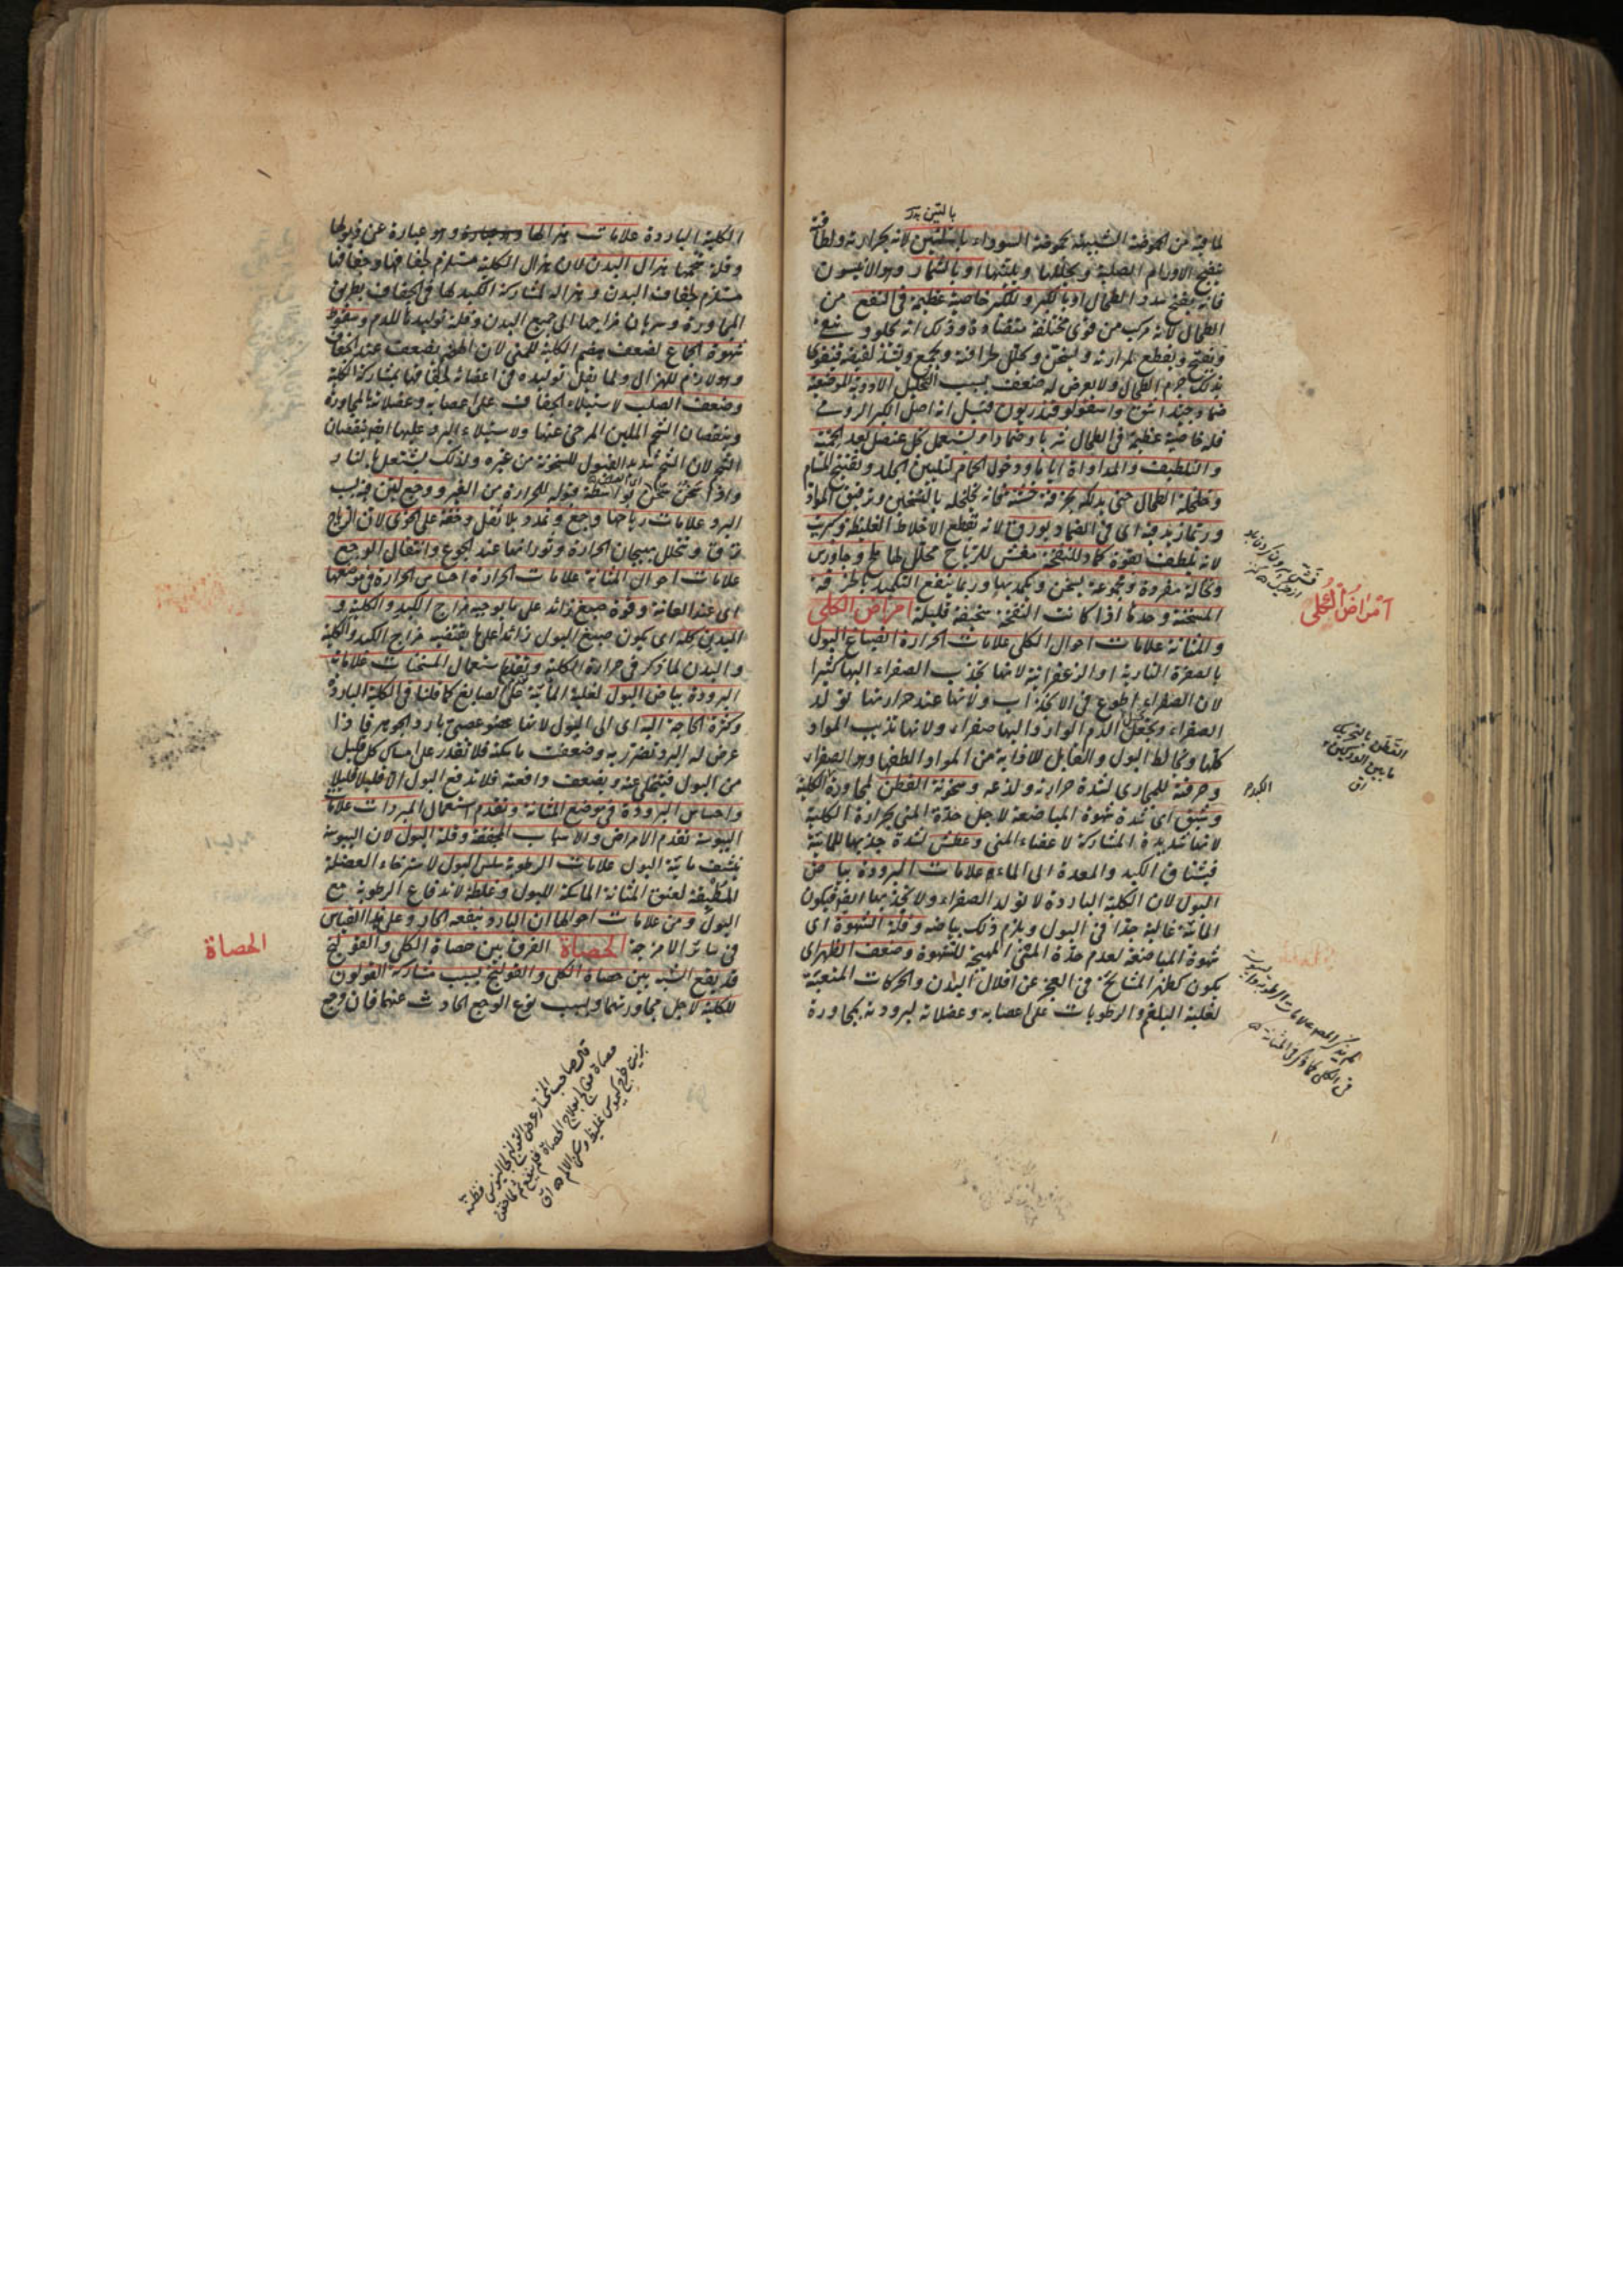 بالتين
لما فيه من الحموضة الشبيهة بحموضة السوداء لانه بحرارته ولطافته
ينضج الاورام الصلبة ويحللها ويلينها او بالشمار وهو الانيسون
فانه يفتح سدد الطحال او بالكبر وللكبر خاصية عظيمة في النفع من
الطحال لانه مركب من قوى مختلفة متضادة وذلك انه يجلو و
ويفتح ويقطع لمرارته ويسخن ويحلل لحرافته ويجمع ويشد لقبضه فيقوى
بذلك جرم الطحال ولا يعرض له ضعف بسبب التحليل الادوية الموضعية
ضماد جيد اشق واسقولوقندريون قيل انه اصل الكبر الرومي
فله خاصية عظيمة في الطحال شربا وضمادا ويستعمل كل عنصل بعد الحمية
والتلطيف والمداواة ايا ما ودخول الحمام لتليين الجلد وتفتيح المسام
وخلخلة الطحال حتى يدلك بخرقة خشنة فانه يخلخله بالتسخين وترقيق المواد
وربما زيد فيه اى في الضماد بورق لانه يقطع الاخلاط الغليظة وكبريت
لانه يلطف بقوة كماد للنفخة مفش للرياح محلل لها ملح وجاورس
ونخالة مفردة ومجموعة يسخن ويكمد بها وربما ينفع التكميد بالخرقة
المسخنة وحدها اذا كانت النفخة خفيفة قليلة امراض الكلى
والمثانة علامات احوال الكلى علامات الحرارة انصباغ البول
بالصفرة النارية او الزعفرانية لانها تجذب الصفراء اليها كثيرا
لان الصفراء اطوع في الانجذاب ولانها عند حرارتها تولد
الصفراء وتجعل الدم الوارد اليها صفراء ولانها تذيب المواد
كلها وتخالط البول والقابل للاذابة من المواد الطفها وهو الصفراء
وحرقته للمجارى لشدة حرارته ولذعه وسخونة القطن لمجاورة الكلية
وشبق اى شدة شهوة المباضعة لاجل حدة المنى بحرارة الكلية
لانها شديدة المشاركة لاعضاء المنى وعطش لشدة جذبها للمائية
فيشتاق الكبد والمعدة الى الماء علامات البرودة بياض
البول لان الكلية الباردة لا تولد الصفراء ولا تجذبها اليها فيكون
المائية غالبة جدا في البول ويلزم ذلك بياضه وقلة الشهوة اى
شهوة المباضعة لعدم حدة المنى المهيجة للشهوة وضعف الظهر اى
يكون كظهر المشايخ في العجز عن اقلال البدن والحركات المتعبة
لغلبة البلغم والرطوبات على اعصابه وعضلاته لبرودته بمجاورة
امراض الكلى
القطن بالتحريك
ما بين الوركين
الكبد
لم يذكر المص علامات الرطوبة واليبوسة
في الكلى كما ذكر في المثانة
الكلية الباردة علامات هزالها وهو عبارة عن ذبولها
وقلة شحمها هزال البدن لان هزال الكلية مستلزم لجفافها وجفافها
مستلزم لجفاف البدن وهزاله لمشاركة الكبد لها في الجفاف بطريق
المجاورة وسريان مزاجها الى جميع البدن وقلة توليدها للدم وسقوط
شهوة الجماع لضعف هضم الكلية للمنى لان الهضم يضعف عند الجفاف
وهو لازم للهزال ولما يقل توليده في اعضائه لجفافها بمشاركة الكلية
وضعف الصلب لاستيلاء الجفاف على اعصابه وعضلاته المجاورة
ونقصان الشحم الملين المرخى عنها ولاستيلاء البرد عليها ايضا بنقصان
الشحم لان الشحم شديد القبول للسخونة من غيره ولذلك يشتعل بالنار
واذا سخن سخن بواسطة قبوله للحرارة من الغير ووجع لين بسبب
البرد علامات رياحها وجع وتمدد بلا ثقل وخفة على الخوى لان الرياح
ترق وتتحلل بهيجان الحرارة وثورانها عند الجوع وانتقال الوجع
علامات احوال المثانة علامات الحرارة احساس الحرارة في موضعها
اى عند العانة وقوة صبغ زائد على ما يوجبه مزاج الكبد والكلية و
البدن كله اى يكون صبغ البول زائدا على ما يقتضيه مزاج الكبد والكلية
والبدن لما ذكر في حرارة الكلية وتقدم استعمال المسخنات علامات
البرودة بياض البول لغلبة المائية على الصابغ كما قلنا في الكلية الباردة
وكثرة الحاجة اليه اى الى البول لانها عضو عصبي بارد الجوهر فاذا
عرض له البرد تضرر به وضعفت ماسكته فلا تقدر على امساك كل قليل
من البول فيتخلى عنه ويضعف دافعته فلا تدفع البول الا قليلا قليلا
واحساس البرودة في موضع المثانة وتقدم استعمال المبردات علامات
اليبوسة تقدم الامراض والاسباب المجففة وقلة البول لان اليبوسة
ينشف مائية البول علامات الرطوبة سلس البول لاسترخاء العضلة
المطيفة لعنق المثانة الماسكة للبول وغلظه لاندفاع الرطوبة مع
البول ومن علامات احوالها ان البارد ينفعه الحار وعلى هذا القياس
في سائر الامزجة الحصاة الفرق بين حصاة الكلى والقولنج
قد يقع الشبه بين حصاة الكلى والقولنج بسبب مشاركة القولون
للكلية لاجل مجاورتهما وبسبب نوع الوجع الحادث عنهما فان وجع
الحصاة
قال صاحب المختار عرض القولنج لجالينوس فظنه
حصاة فعالج بعلاج الحصاة فلم ينفع ثم لما حقن
بزيت خرج كيموس غليظ وسكن الالم